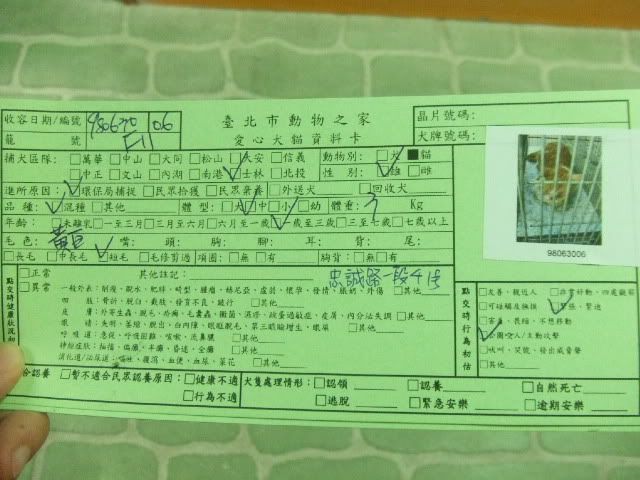 收容日期/編號 980630 06 臺北市動物之家 晶片號碼:
籠 號 E11 愛心犬貓資料卡 犬牌號碼:
捕犬區隊: □萬華 □中山 □大同 □松山 □大安 □信義 動物別: □犬 ■貓
□中正 □文山 □內湖 □南港 □士林 □北投 性 別: □雄 □雌
進所原因: □環保局捕捉 □民眾拾獲 □民眾棄養 □外送犬 □回收犬
品 種: □混種 □其他 體 型: □大 □中 □小 □幼 體重: Kg
年齡: □未離乳 □一至三月 □三月至六月 □六月至一歲 □一歲至三歲 □三至七歲 □七歲以上
毛 色: 黃白 嘴: 頭: 胸: 腳: 耳: 背: 尾:
□長毛 □中長毛 □短毛 □毛修剪過 項圈: □無 □有 胸背: □無 □有
98063006
點交時健康狀況初
□正常 其他註記: 忠誠路一段
□異常 一般外表: 削瘦、脫水、肥胖、畸型、腫瘤、赫尼亞、虛弱、懷孕、發情、脹奶、外傷 □其他
四 肢: 骨折、脫臼、截肢、發育不良、跛行 □其他
皮 膚: 外寄生蟲、脫毛、疥癬、毛囊蟲、黴菌、濕疹、跳蚤過敏症、皮屑、內分泌失調 □其他
眼 睛: 失明、萎縮、脫出、白內障、眼瞼脫毛、第三眼瞼增生、眼屎 □其他
呼吸道: 急促、呼吸困難、咳嗽、流鼻膿 □其他
神經症狀: 抽搐、偏癱、半癱、昏迷、全癱 □其他
消化道/泌尿道: 嘔吐、腹瀉、血便、血尿、尿石 □其他
點交時行為初估
□友善、親近人 □非常好動、四處觀察
□可碰觸及撫摸 □緊張、緊迫
□害羞、畏縮、不想移動
□企圖咬人/主動攻擊
□吠叫、哭號、發出威脅聲
□其他
合認養 □暫不適合民眾認養原因: □健康不適 犬隻處理情形: □認領 □認養 □自然死亡
□行為不適 □逃脫 □緊急安樂 □逾期安樂